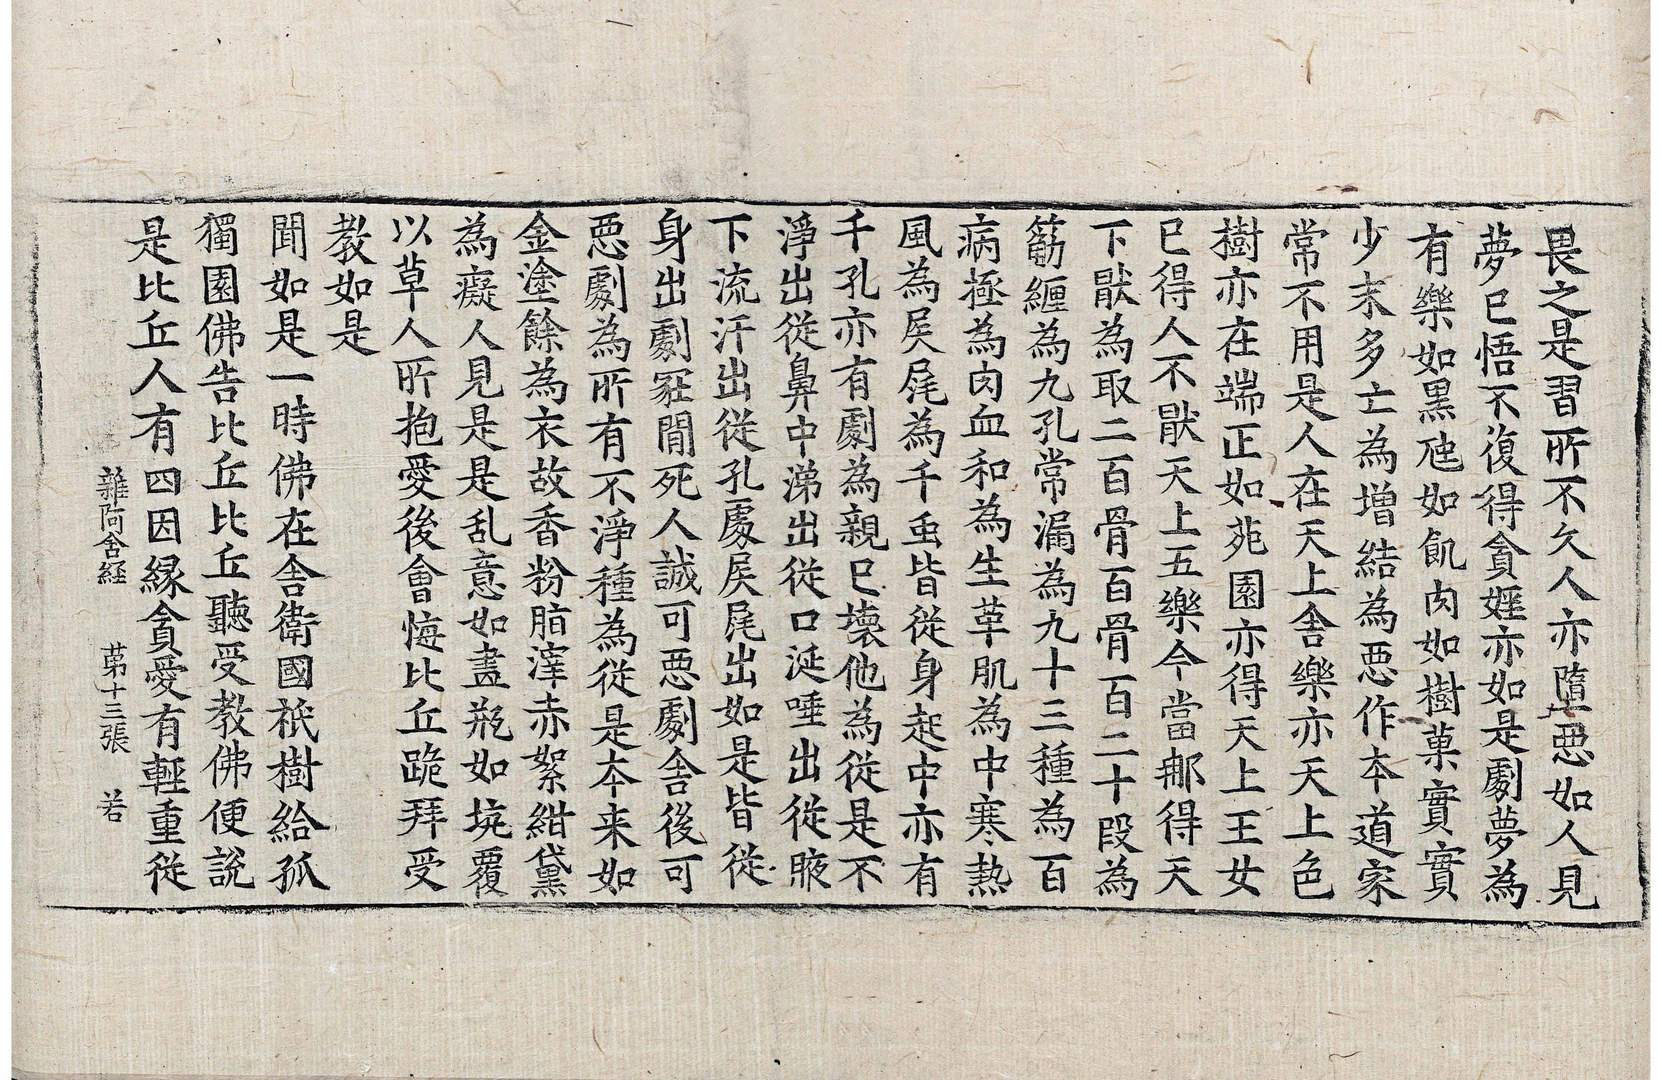 畏之是習所不久人亦墮惡如人見
夢已悟不復得貪婬亦如是劇夢為
有樂如黑虺如飢肉如樹菓實實
少末多亡為增結為惡作本道家
常不用是人在天上舍樂亦天上色
樹亦在端正如苑園亦得天上王女
已得人不猒天上五樂今當那得天
下猒為取二百骨百骨百二十段為
筋纏為九孔常漏為九十三種為百
病極為肉血和為生革肌為中寒熱
風為屎尾為千虫皆從身起中亦有
千孔亦有劇為親已壞他為從是不
淨出從鼻中涕出從口涎唾出從腋
下流汗出從孔處屎尾出如是皆從
身出劇冢間死人誠可惡劇舍後可
惡劇為所有不淨種為從是本来如
金塗餘為衣故香粉脂滓赤絮紺黛
為癡人見是是乱意如畫瓶如坑覆
以草人所抱愛後會悔比丘跪拜受
教如是
聞如是一時佛在舍衛國祇樹給孤
獨園佛告比丘比丘聽受教佛便說
是比丘人有四因緣貪愛有輕重從
雜阿含経 苐十三張 若